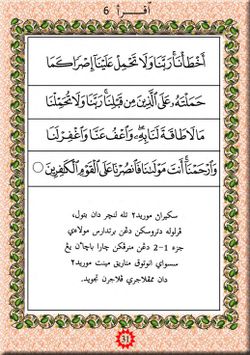 اقرأ 6
أَخْطَأْنَا رَبَّنَا وَلَا تَحْمِلْ عَلَيْنَا إِصْرًا كَمَا
حَمَلْتَهُ عَلَى الَّذِينَ مِن قَبْلِنَا رَبَّنَا وَلَا تُحَمِّلْنَا
مَا لَا طَاقَةَ لَنَا بِهِ وَاعْفُ عَنَّا وَاغْفِرْ لَنَا
وَارْحَمْنَا أَنتَ مَوْلَانَا فَانصُرْنَا عَلَى الْقَوْمِ الْكَافِرِينَ
سکيراڽ موريد٢ تله لنچر دان بتول،
ڤرلوله دتروسکن دڠن برتدارس مولاءي
جزء 1-2 دڠن منرڠکن چارا باچاءن يڠ
سسواي اونتوق مناريق مينت موريد٢
دان مڠڬلاجري ڤلاجرن تجويد.
31